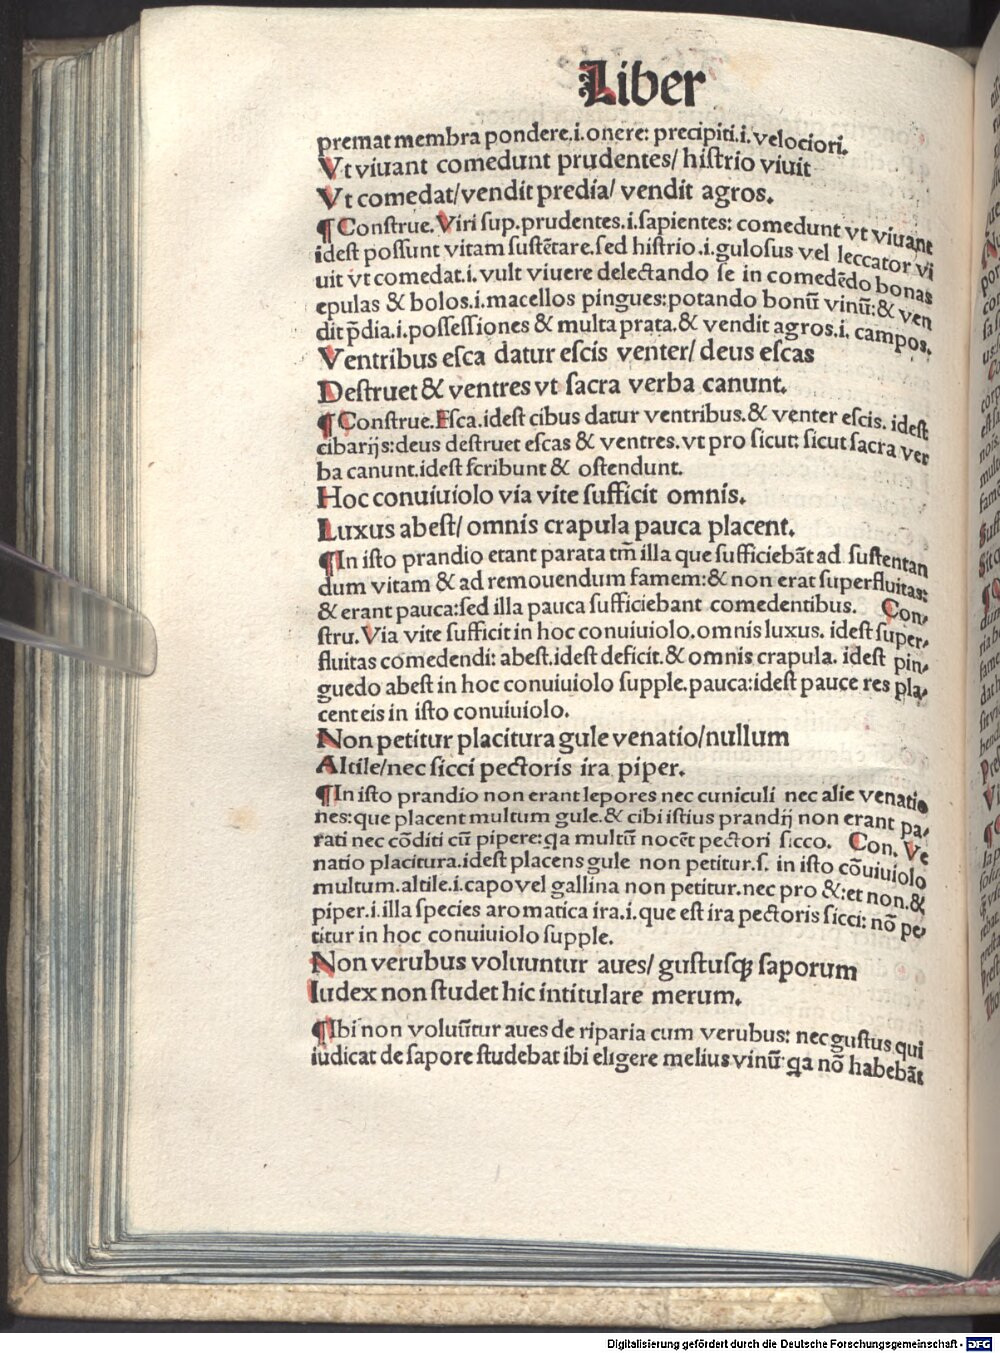 Liber
premat membra pondere.i.onere: precipiti.i.velociori.
Vt viuant comedunt prudentes/ histrio viuit
Vt comedat/vendit predia/ vendit agros.
¶ Construe. Viri sup.prudentes.i.sapientes: comedunt vt viuant
idest possunt vitam sustētare.sed histrio.i.gulosus vel leccator vi
uit vt comedat.i.vult viuere delectando se in comedēdo bonas
epulas & bolos.i.macellos pingues:potando bonū vinū:& ven
dit p̄dia.i.possessiones & multa prata.& vendit agros.i. campos.
Ventribus esca datur escis venter/ deus escas
Destruet & ventres vt sacra verba canunt.
¶ Construe.Esca.idest cibus datur ventribus.& venter escis. idest
cibarijs:deus destruet escas & ventres.vt pro sicut: sicut sacra ver
ba canunt.idest scribunt & ostendunt.
Hoc conuiuiolo via vite sufficit omnis.
Luxus abest/ omnis crapula pauca placent.
¶In isto prandio erant parata tm̄ illa que sufficiebāt ad sustentan
dum vitam & ad remouendum famem:& non erat superfluitas:
& erant pauca:sed illa pauca sufficiebant comedentibus. Con-
stru. Via vite sufficit in hoc conuiuiolo.omnis luxus. idest super-
fluitas comedendi: abest.idest deficit.& omnis crapula. idest pin-
guedo abest in hoc conuiuiolo supple.pauca:idest pauce res pla-
cent eis in isto conuiuiolo.
Non petitur placitura gule venatio/nullum
Altile/nec sicci pectoris ira piper.
¶In isto prandio non erant lepores nec cuniculi nec alie venatio
nes:que placent multum gule.& cibi istius prandij non erant pa-
rati nec cōditi cū pipere:qa multū nocēt pectori sicco. Con. Ve
natio placitura.idest placens gule non petitur.s. in isto cōuiuiolo
multum.altile.i.capo vel gallina non petitur.nec pro &:et non.&
piper.i.illa species aromatica ira.i.que est ira pectoris sicci: nō pe-
titur in hoc conuiuiolo supple.
Non verubus voluuntur aues/ gustusqꝫ saporum
Iudex non studet hic intitulare merum.
¶Ibi non voluūtur aues de riparia cum verubus: nec gustus qui
iudicat de sapore studebat ibi eligere melius vinū: qa nō habebāt
Digitalisierung gefördert durch die Deutsche Forschungsgemeinschaft - DFG